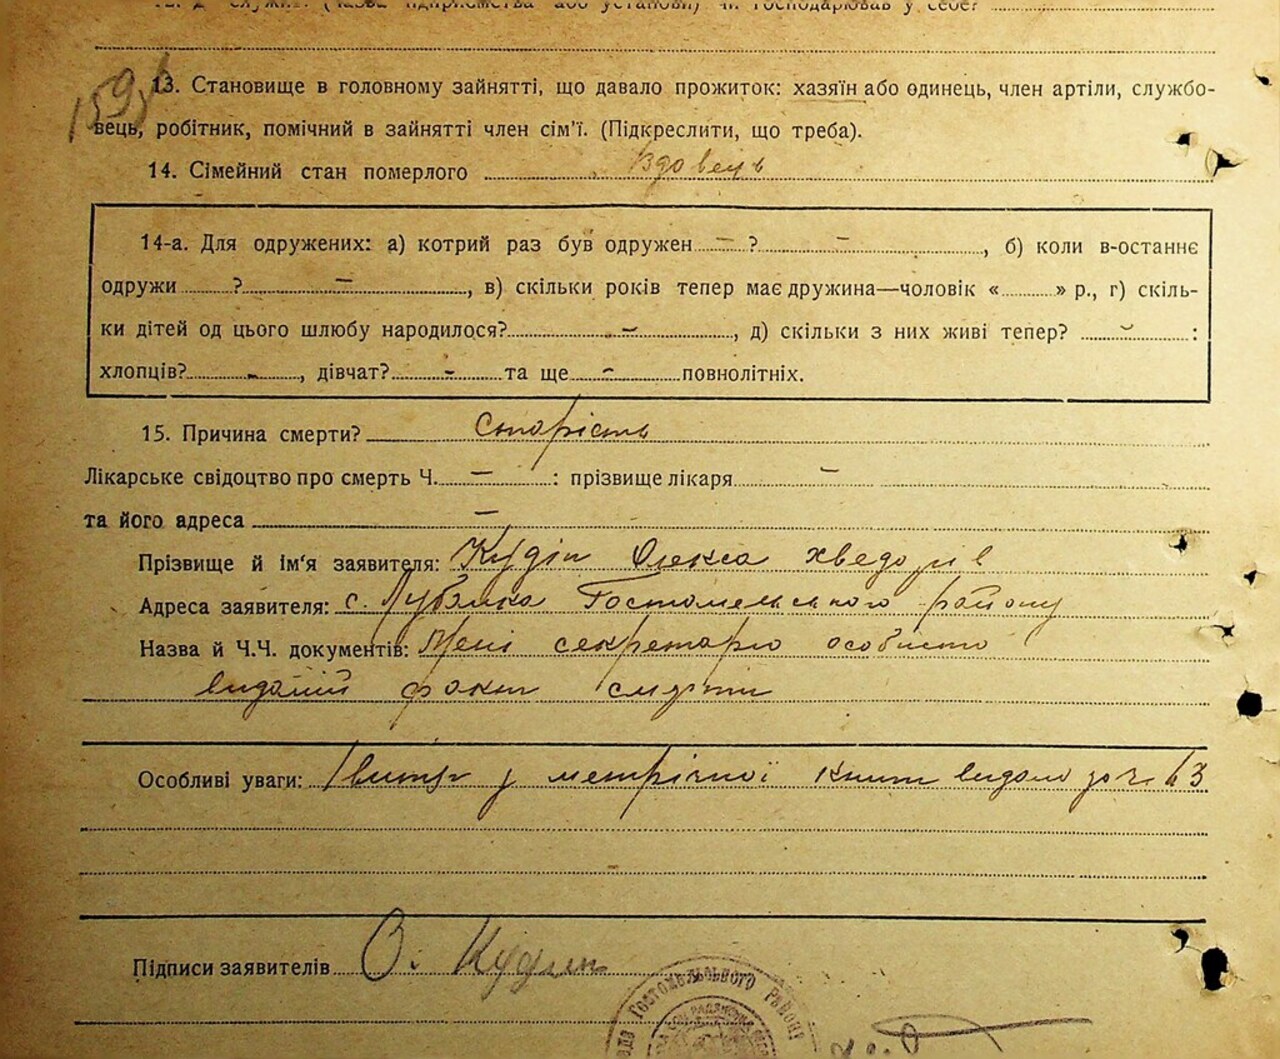 12. Де служив (назва підприємства або установи) чи господарював у себе?
159
13. Становище в головному зайнятті, що давало прожиток: хазяїн або одинець, член артілі, службо-
вець, робітник, помічний в зайнятті член сім'ї. (Підкреслити, що треба).
14. Сімейний стан померлого вдовець
14-а. Для одружених: а) котрий раз був одружен – ? –, б) коли в-останнє
одружи ? –, в) скільки років тепер має дружина—чоловік « » р., г) скіль-
ки дітей од цього шлюбу народилося? –, д) скільки з них живі тепер? – :
хлопців? –, дівчат? – та ще – повнолітніх.
15. Причина смерти? Старість
Лікарське свідоцтво про смерть Ч. – : прізвище лікаря –
та його адреса –
Прізвище й ім'я заявителя: Кудін Олекса Хведорів
Адреса заявителя: с. Лубянка Гостомельського району
Назва й Ч.Ч. документів: Мені секретарю особисто
видомий факт смерти
Особливі уваги: Витяг з метрічної книги видано за ч. 63
Підписи заявителів О. Кудин
Гостомельського Району